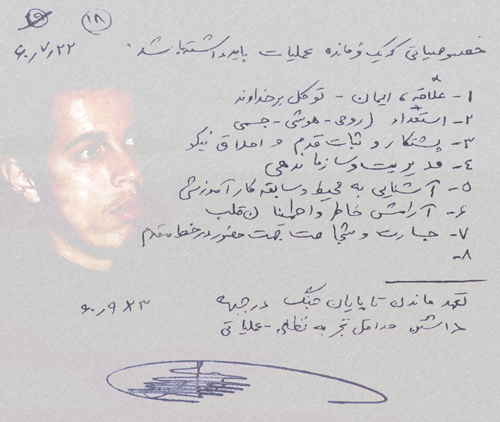 ۹ ۱۸
۶۰/۷/۲۲
خصوصیاتی که یک فرمانده عملیات باید داشته باشد:
۱- علاقه، ایمان - توکل بر خداوند
۲- استعداد (روحی - هوشی - جسمی
۳- پشتکار و ثبات قدم و اخلاق نیکو
۴- مدیریت و سازماندهی
۵- آشنایی به محیط و سابقه کار آموزشی
۶- آرامش خاطر و اطمینان قلب
۷- جسارت و شجاعت جهت حضور در خط مقدم
۸-
تعهد ماندن تا پایان جنگ در جبهه
داشتن حداقل تجربه نظامی - عملیاتی